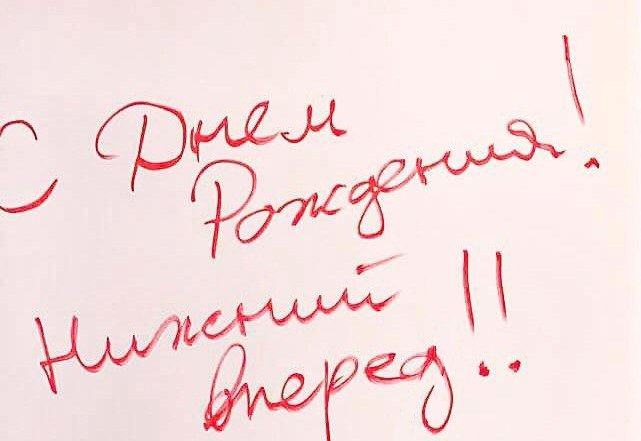 С Днем
Рождения!
Нижний !!
Вперед